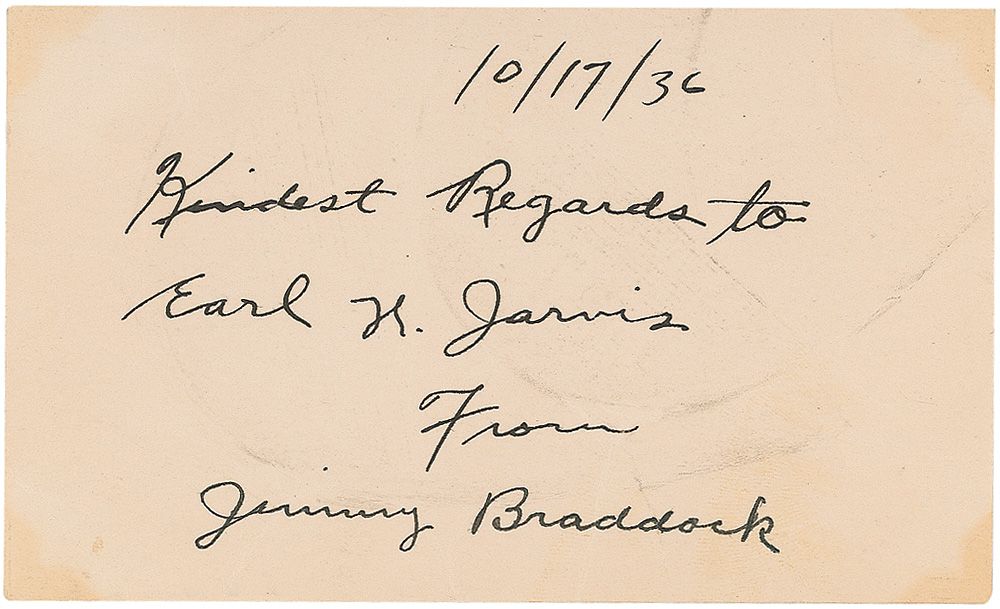 10/17/36
Kindest Regards to
Earl H. Jarvis
From
Jimmy Braddock